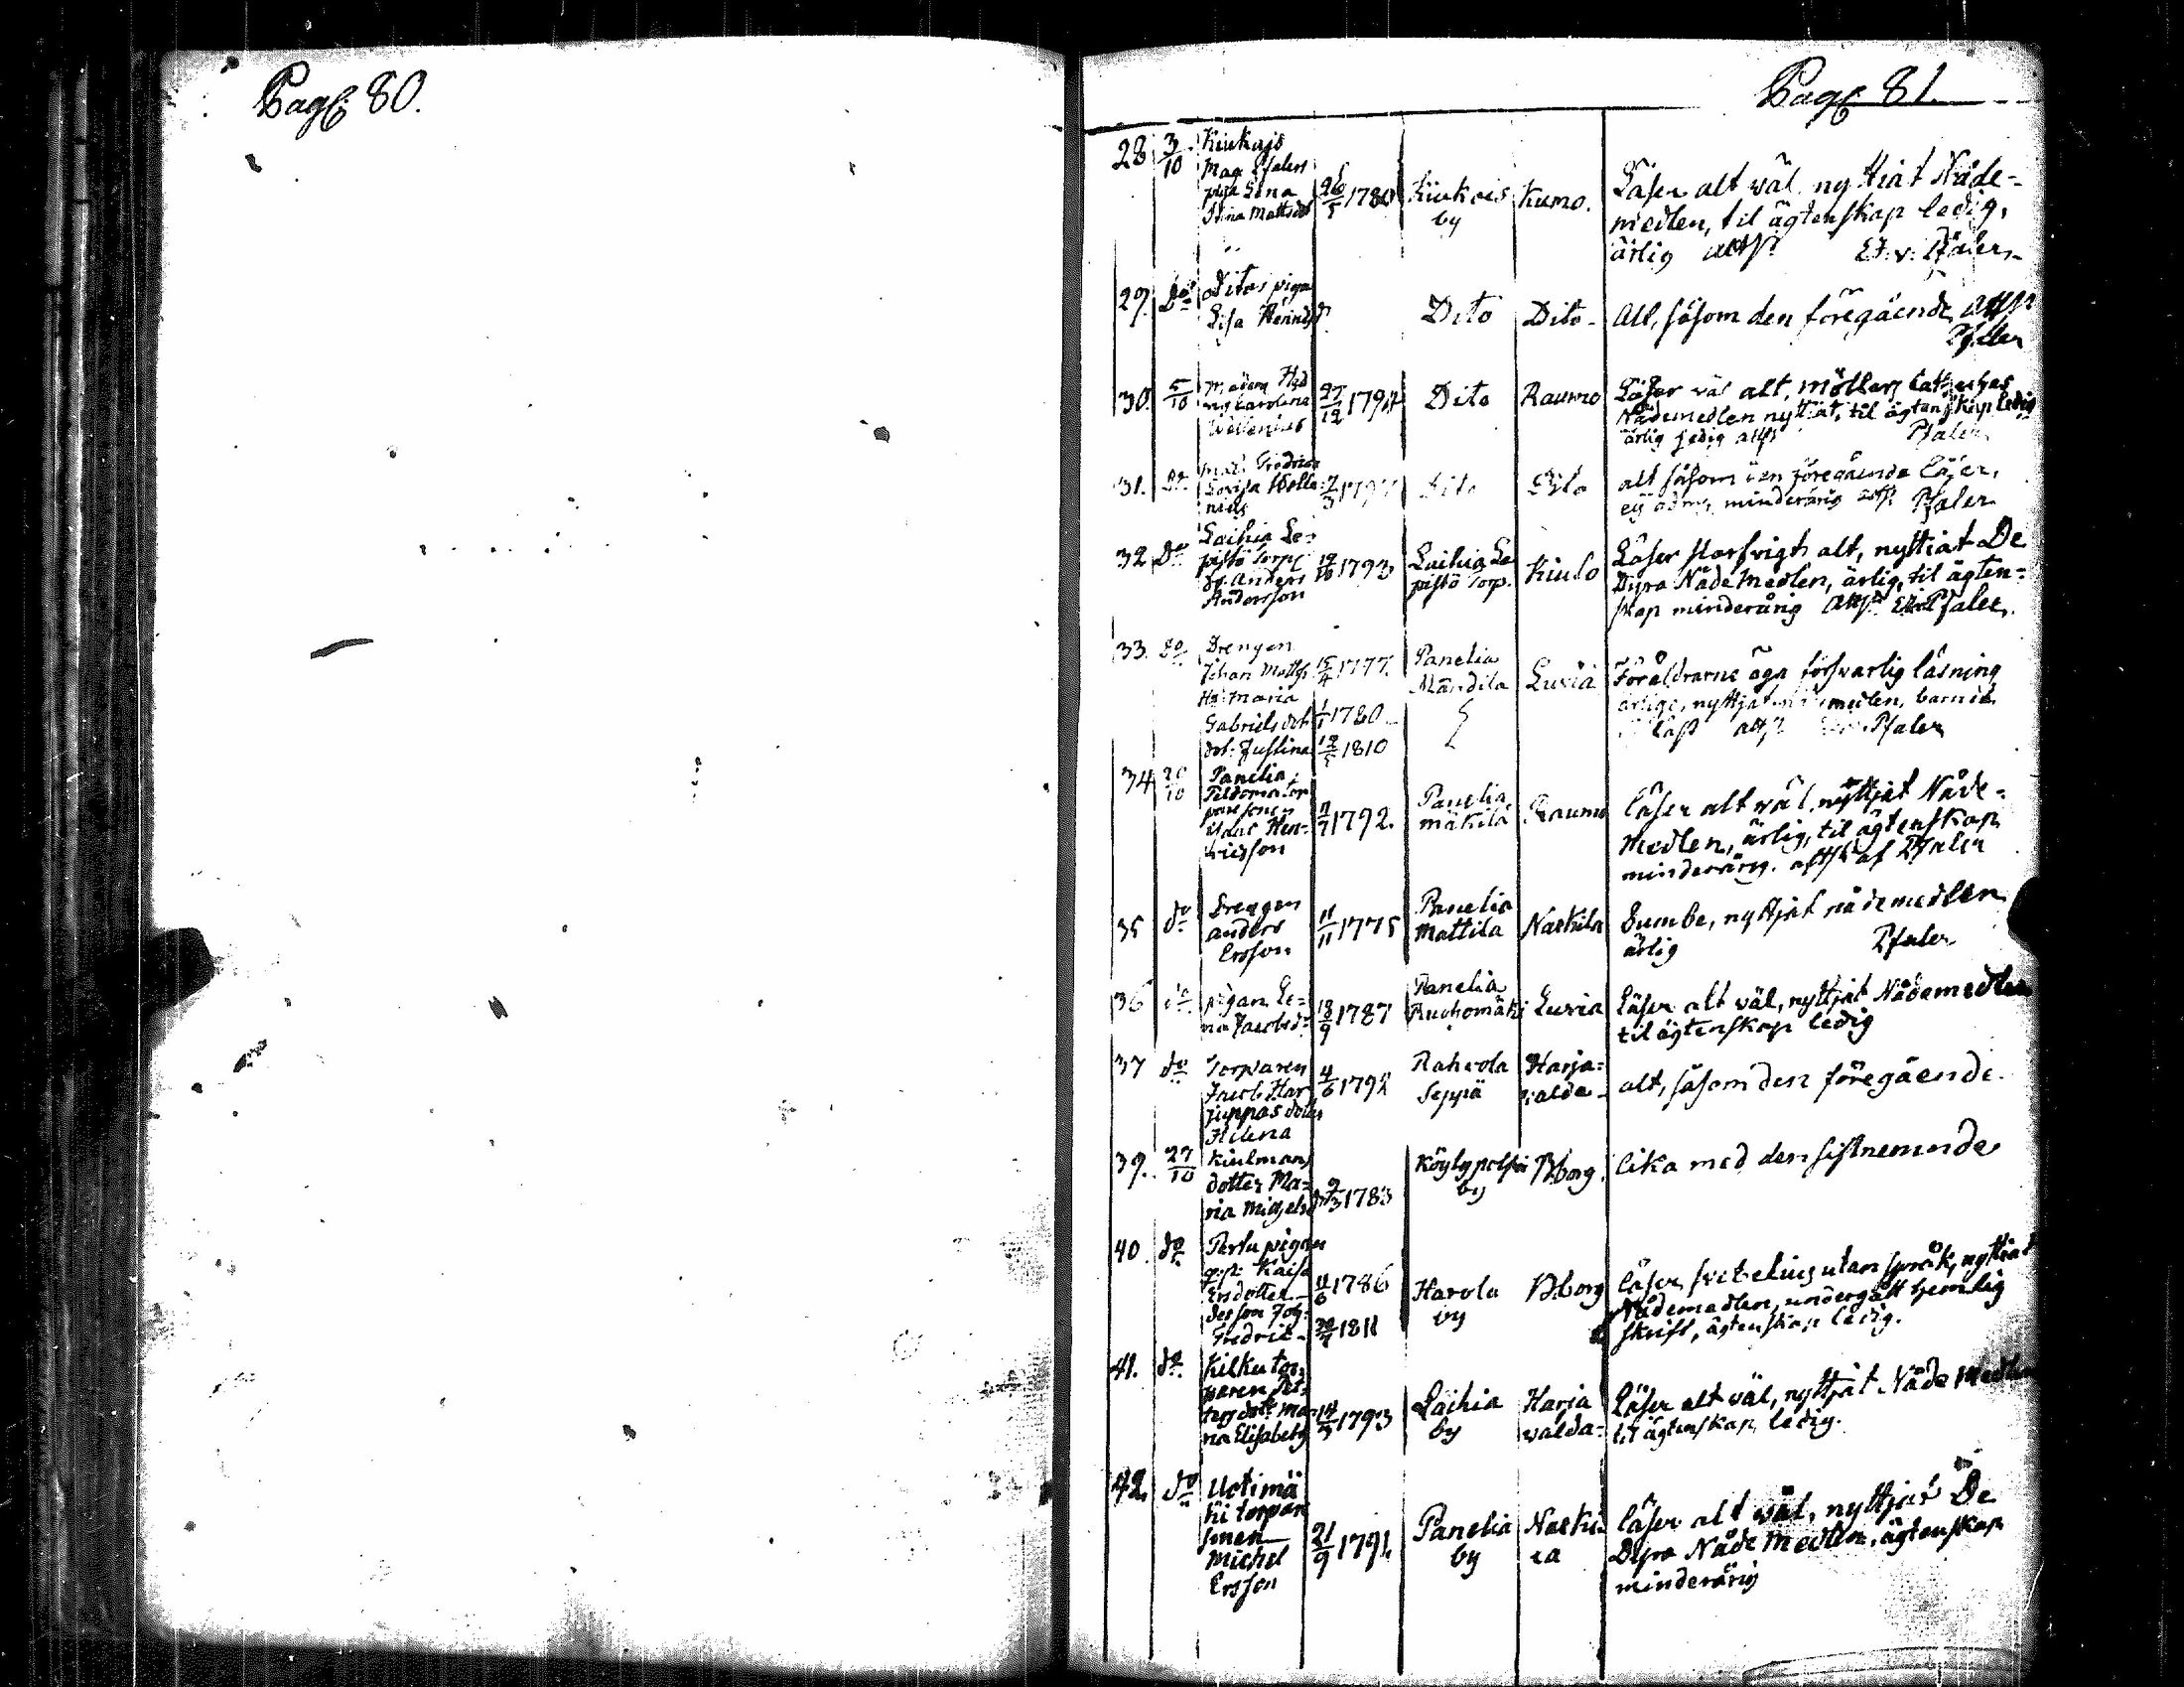 Pag: 80.
Pag: 81.
28 3/10 Kiukais
Mag Pfalers
piga Lena
Stina Mattsdot 26/5 1780 Kiukais by Kumo. Läser alt wäl, nyttiat Nåde-
medlen, til ägtenskap ledig,
ärlig att? Er. v. Pfaler
29. Do Ditos piga
Lisa Henricsd Dito Dito. All, såsom den föregående att?
Pfaler
30. 5/10 Hed
Carolina
Wellenius 27/12 1794 Dito Raumo Läser wäl alt,
Nådemedlen nyttiat, til ägtenskap ledig
ärlig att? Pfaler
31. Do Fredrica
Lovisa Welle-
nius Dito Dito alt såsom den föregående läser,
ej minderårig att? Pfaler
32 Do Laihia Le-
pistö Torp:
dr. Anders
Andersson 1793 Laihia Le
pistö Torp. Kiulo Läser alt, nyttiat De
Dyra Nåde Medlen, ärlig, til ägten-
skap minderårig att? Pfaler.
33. Do Drengen
Johan Matts 15/4 1777. Panelia
Mändila Luvia Föräldrarne äga försvarlig läsning
Hu Maria ärlige, nyttjat medlen, barnet
Gabrielsdot 1/1 1780
dot. Justina 1810 att? Pfaler
34 20/10 Panelia
Isaac Hen-
ricsson 11/7 1792. Panelia
mäkilä Raumo läser alt wäl, nyttjat Nåde-
Medlen, ärlig, til ägtenskap
minderårig. att? af Pfaler
35 do Drengen
anders
Ersson 11/11 1775 Panelia
Mattila Nakkila Dumbe, nyttjat nådemedlen
ärlig Pfaler
36 do pigan Le-
na Jacobsd: 18/9 1787 Panelia
Ruohomäki Luvia Läser alt wäl, nyttjat Nådemedlen
til ägtenskap ledig
37 do Torparen
Jacob Har
juppas dotter
Helena 4/6 1792 Rahvola
Seppä Harja-
valda- alt, såsom den föregående.
39. 27/10 Kiulmans
dotter Ma-
ria Michelsd 9/3 1783 Köylypolfvi
by Bborg. lika med den sistnemnde
40 do Pertu pigan
q.p. Kaisa
Ersdotter 11/6 1786 Harola
by Bborg läser utan språk, nyttiat
Nådemedlen, undergått hemlig
dess son Joh:
Fredric 1811 skrift, ägtenskap ledig.
41. do Kilku tor-
paren Pet-
ters dott Ma-
ria Elisabeth 1793 Laihia
by Harja
valda- Läser alt wäl, nyttjat Nåde Medlen
til ägtenskap ledig.
42. do Uotimä
ki torpare
sonen
Michel
Ersson 21/9 1791. Panelia
by Nakki-
la läser alt wäl, nyttjat De
Dyra Nåde Medlen, ägtenskap
minderårig